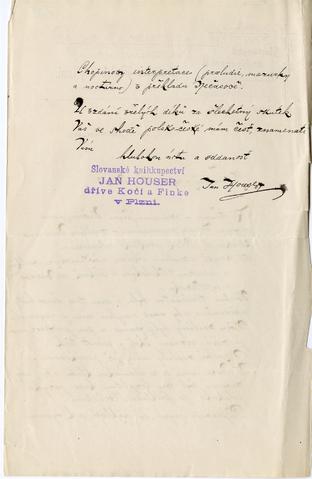 Chopinovy interpretace (preludie, mazurky
a nocturno) v překladu Ječasově.
Uvzdání vřelých díků za šlechetný skutek
Váš ve shodě polsko-české mám čest, znamenati
Vám
hlubokou úctu a oddanost
Jan Houser
Slovanské knihkupectví
JAN HOUSER
dříve Kočí a Finke
v Plzni.